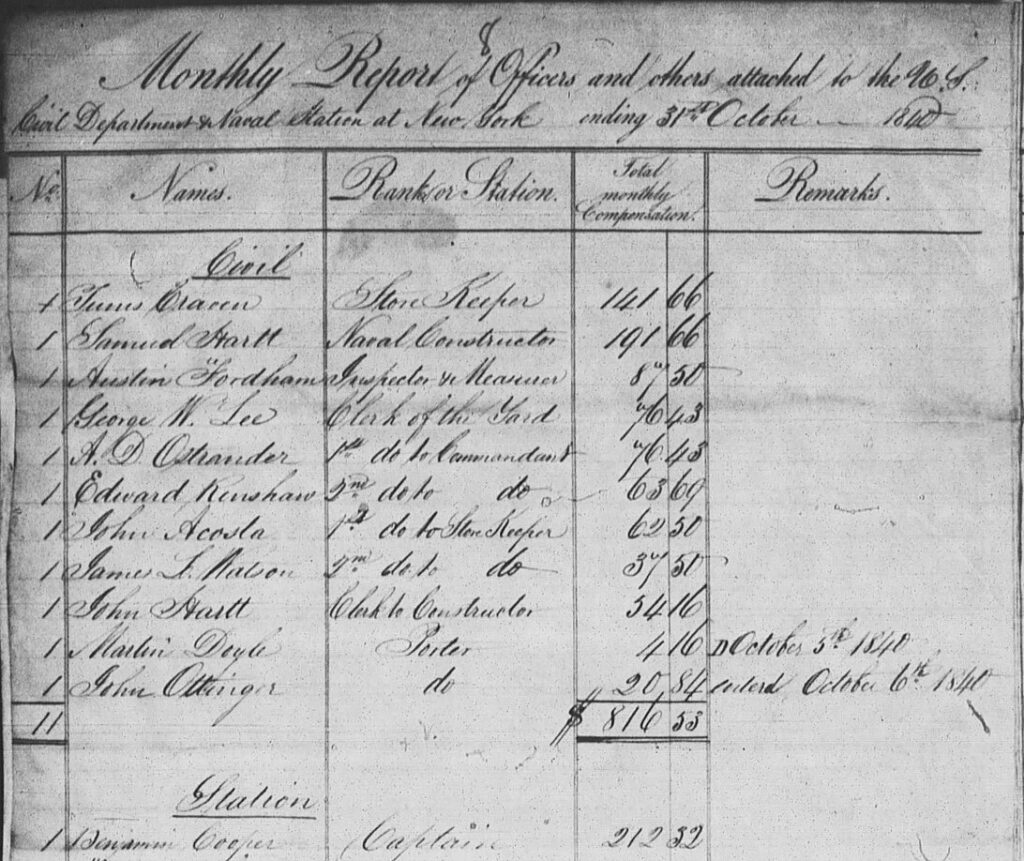 8
Monthly Report of Officers and others attached to the U.S.
Civil Department & Naval Station at New York ending 31st October 1840
No. Names. Rank or Station. Total monthly Compensation. Remarks.
Civil
1 Tunis Craven Store Keeper 141 66
1 Samuel Hartt Naval Constructor 191 66
1 Austin Fordham Inspector & Measurer 87 50
1 George W. Lee Clerk of the Yard 76 43
1 A. D. Ostrander 1st do to Commandant 76 43
1 Edward Renshaw 2nd do to do 63 69
1 John Acosta 1st do to Store Keeper 62 50
1 James L. Watson 2nd do to do 37 50
1 John Hartt Clerk to Constructor 54 16
1 Martin Doyle Porter 4 16 D October 5th 1840
1 John Ottinger do 20 84 enterd October 6th 1840
11 $ 816 53
Station
1 Benjamin Cooper Captain 212 32